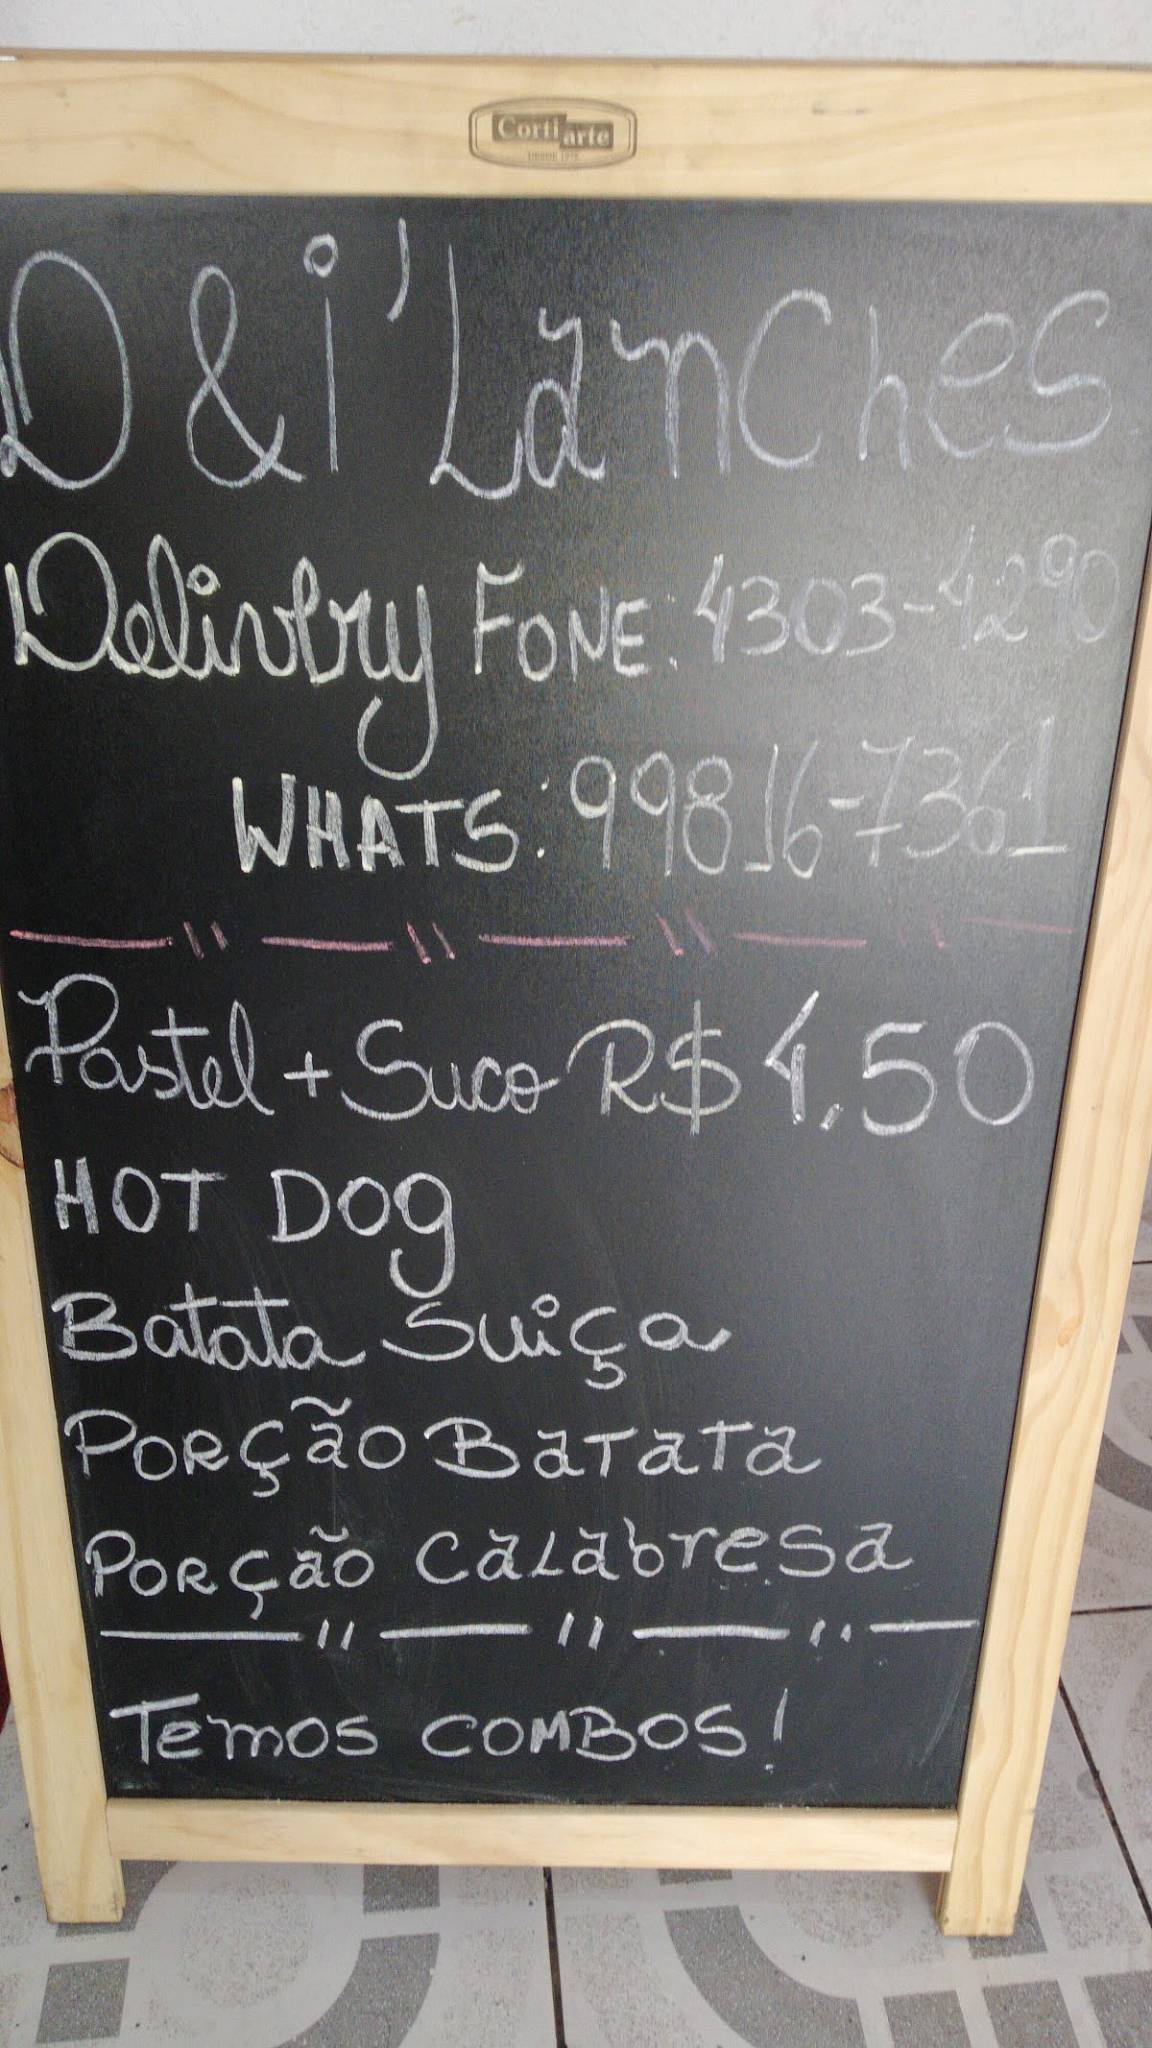 Corti arte
DESDE 1978
D & i' Lanches
Delivery FONE: 4303-4290
WHATS: 99816-7361
Pastel + Suco R$ 4,50
HOT DOg
Batata Suiça
PORÇãO BaTaTa
PORÇãO CaLabresa
Temos COMBOS!